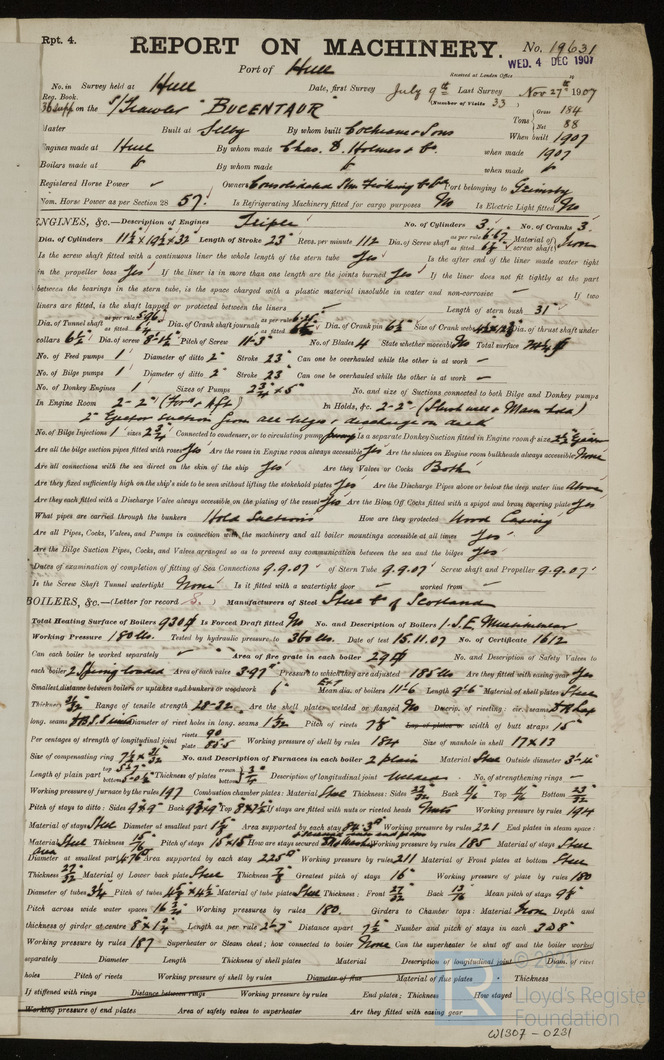 Rpt. 4.
REPORT ON MACHINERY. No. 19631
Port of Hull
Received at London Office WED. 4 DEC 1907
No. in Survey held at Hull Date, first Survey July 9th Last Survey Nov 27th 1907
Reg. Book. (Number of Visits 33)
36 supp on the S/Trawler "BUCENTAUR" Tons { Gross 184 Net 88
Master Built at Selby By whom built Cochrane & Sons When built 1907
Engines made at Hull By whom made Chas. D. Holmes & Co. when made 1907
Boilers made at By whom made when made
Registered Horse Power Owners Consolidated Stm Fishing Co Port belonging to Grimsby
Nom. Horse Power as per Section 28 57. Is Refrigerating Machinery fitted for cargo purposes No Is Electric Light fitted No
ENGINES, &c.—Description of Engines Triple No. of Cylinders 3. No. of Cranks 3.
Dia. of Cylinders 11½ x 19½ x 32 Length of Stroke 23" Revs. per minute 112 Dia. of Screw shaft as per rule 6.67 as fitted Material of screw shaft Iron
Is the screw shaft fitted with a continuous liner the whole length of the stern tube Yes Is the after end of the liner made water tight
in the propeller boss Yes If the liner is in more than one length are the joints burned Yes If the liner does not fit tightly at the part
between the bearings in the stern tube, is the space charged with a plastic material insoluble in water and non-corrosive – If two
liners are fitted, is the shaft lapped or protected between the liners Length of stern bush 31"
Dia. of Tunnel shaft as per rule 5.96 as fitted Dia. of Crank shaft journals as per rule as fitted Dia. of Crank pin 6½ Size of Crank webs Dia. of thrust shaft under
collars 6½ Dia. of screw 8-1½ Pitch of Screw 11-3" No. of Blades 4 State whether moveable No Total surface
No. of Feed pumps 1 Diameter of ditto 2" Stroke 23" Can one be overhauled while the other is at work –
No. of Bilge pumps 1 Diameter of ditto 2" Stroke 23" Can one be overhauled while the other is at work –
No. of Donkey Engines 1 Sizes of Pumps 2¾ x 5" No. and size of Suctions connected to both Bilge and Donkey pumps
In Engine Room 2-2" (For'd & Aft) In Holds, &c. 2-2" (Slush well & Main hold)
2" Ejector suction from all bilges & discharge on deck
No. of Bilge Injections 1 sizes 2¾ Connected to condenser, or to circulating pump Is a separate Donkey Suction fitted in Engine room & size
Are all the bilge suction pipes fitted with roses Yes Are the roses in Engine room always accessible Yes Are the sluices on Engine room bulkheads always accessible None
Are all connections with the sea direct on the skin of the ship Yes Are they Valves or Cocks Both
Are they fixed sufficiently high on the ship's side to be seen without lifting the stokehold plates Yes Are the Discharge Pipes above or below the deep water line Above
Are they each fitted with a Discharge Valve always accessible on the plating of the vessel Yes Are the Blow Off Cocks fitted with a spigot and brass covering plate Yes
What pipes are carried through the bunkers Hold Suctions How are they protected Wood Casing
Are all Pipes, Cocks, Valves, and Pumps in connection with the machinery and all boiler mountings accessible at all times Yes
Are the Bilge Suction Pipes, Cocks, and Valves arranged so as to prevent any communication between the sea and the bilges Yes
Dates of examination of completion of fitting of Sea Connections 9.9.07 of Stern Tube 9.9.07 Screw shaft and Propeller 9.9.07
Is the Screw Shaft Tunnel watertight None Is it fitted with a watertight door – worked from –
BOILERS, &c.—(Letter for record S.) Manufacturers of Steel Steel Co of Scotland
Total Heating Surface of Boilers 930 Is Forced Draft fitted No No. and Description of Boilers 1-S.E. Multitubular
Working Pressure 180 lbs. Tested by hydraulic pressure to 360 lbs. Date of test 15.11.07 No. of Certificate 1612
Can each boiler be worked separately – Area of fire grate in each boiler 29 No. and Description of Safety Valves to
each boiler 2 Spring loaded Area of each valve 3.97 Pressure to which they are adjusted 185 lbs Are they fitted with easing gear Yes
Smallest distance between boilers or uptakes and bunkers or woodwork 6" Mean dia. of boilers 11-6 Length 9'-6 Material of shell plates Steel
Thickness 31/32 Range of tensile strength 28-32 Are the shell plates welded or flanged No Descrip. of riveting: cir. seams D R Lap
long. seams Diameter of rivet holes in long. seams 1 1/32 Pitch of rivets 7⅛ Lap of plates or width of butt straps 15"
Per centages of strength of longitudinal joint rivets 90 plate 85.5 Working pressure of shell by rules 184 Size of manhole in shell 17 x 13
Size of compensating ring 7½ x 31/32 No. and Description of Furnaces in each boiler 2 plain Material Steel Outside diameter 3'-4"
Length of plain part top 5-7" bottom 5-0½ Thickness of plates crown bottom } 3/4 Description of longitudinal joint Welded No. of strengthening rings –
Working pressure of furnace by the rules 197 Combustion chamber plates: Material Steel Thickness: Sides 22/32 Back 11/16 Top 11/16 Bottom 23/32
Pitch of stays to ditto: Sides 9 x 9 Back Top If stays are fitted with nuts or riveted heads Nuts Working pressure by rules 194
Material of stays Steel Diameter at smallest part 1⅝ Area supported by each stay 84.3 Working pressure by rules 221 End plates in steam space:
Material Steel Thickness Pitch of stays 15 x 15 How are stays secured Working pressure by rules 185 Material of stays Steel
Area
Diameter at smallest part 4.76 Area supported by each stay 225 Working pressure by rules 211 Material of Front plates at bottom Steel
Thickness 27/32 Material of Lower back plate Steel Thickness 7/8 Greatest pitch of stays 16 Working pressure of plate by rules 180
Diameter of tubes 3¼ Pitch of tubes 4½ x 4½ Material of tube plates Steel Thickness: Front 27/32 Back 13/16 Mean pitch of stays 9⅛
Pitch across wide water spaces Working pressures by rules 180. Girders to Chamber tops: Material Iron Depth and
thickness of girder at centre 8 x 1¾ Length as per rule 2'-7" Distance apart 7½ Number and pitch of stays in each 3 @ 8"
Working pressure by rules 187 Superheater or Steam chest; how connected to boiler None Can the superheater be shut off and the boiler worked
separately Diameter Length Thickness of shell plates Material Description of longitudinal joint Diam. of rivet
holes Pitch of rivets Working pressure of shell by rules Diameter of flue Material of flue plates Thickness
If stiffened with rings Distance between rings Working pressure by rules End plates: Thickness How stayed
Working pressure of end plates Area of safety valves to superheater Are they fitted with easing gear
© 2021
LR Lloyd's Register
Foundation
W1307-0231